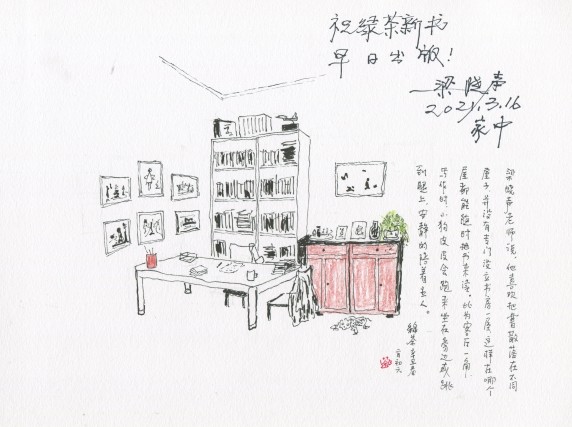 祝绿茶新书
早日出版！
梁晓声
2021.3.16
家中
梁晓声老师说，他喜欢把书散落在不同
屋子，并没有专门设立书房一房，这样在哪个
屋都能随时抽书来读。此为客厅一角，
写作时，小狗皮皮会跑来坐在旁边或跳
到腿上，安静的陪着主人。
绿茶 辛丑春
二月初六